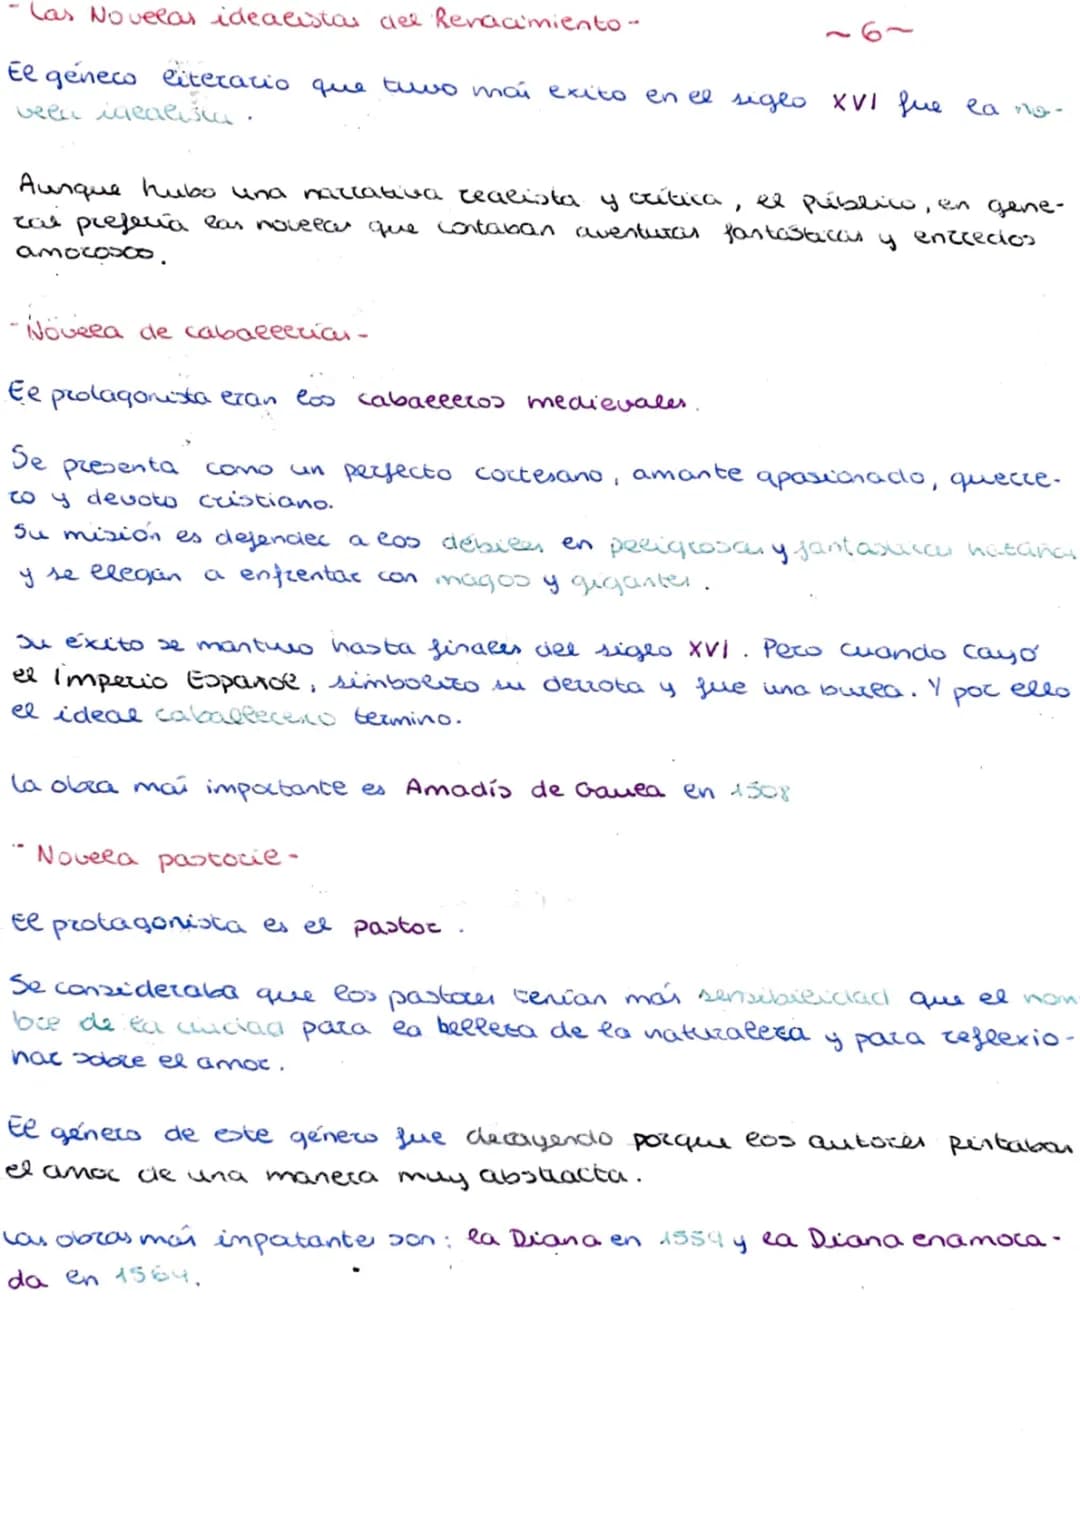 - Las Novelas idealistas del Renacimiento -
~6~
El género literario que tuvo más exito en el siglo XVI fue la no-
vela idealista.
Aunque hubo una narrativa realista y crítica, el público, en gene-
ral prefería las novelas que contaban aventuras fantásticas y enredos
amorosos.
- Novela de caballerías -
El protagonista eran los caballeros medievales.
Se presenta como un perfecto cortesano, amante apasionado, guerre-
ro y devoto cristiano.
Su misión es defender a los débiles en peligrosas y fantásticas hazañas
y se llegan a enfrentar con magos y gigantes.
Su éxito se mantuvo hasta finales del siglo XVI. Pero cuando cayó
el Imperio Español, simbolizo su derrota y fue una burla. Y por ello
el ideal caballeresco termino.
La obra más importante es Amadís de Gaula en 1508
- Novela pastoril -
El protagonista es el pastor.
Se consideraba que los pastores tenían más sensibilidad que el hom
bre de la ciudad para la belleza de la naturaleza y para reflexio-
nar sobre el amor.
El género de este género fue decayendo porque los autores pintaban
el amor de una manera muy abstracta.
Las obras más inpotante son: la Diana en 1559 y la Diana enamora-
da en 1564.